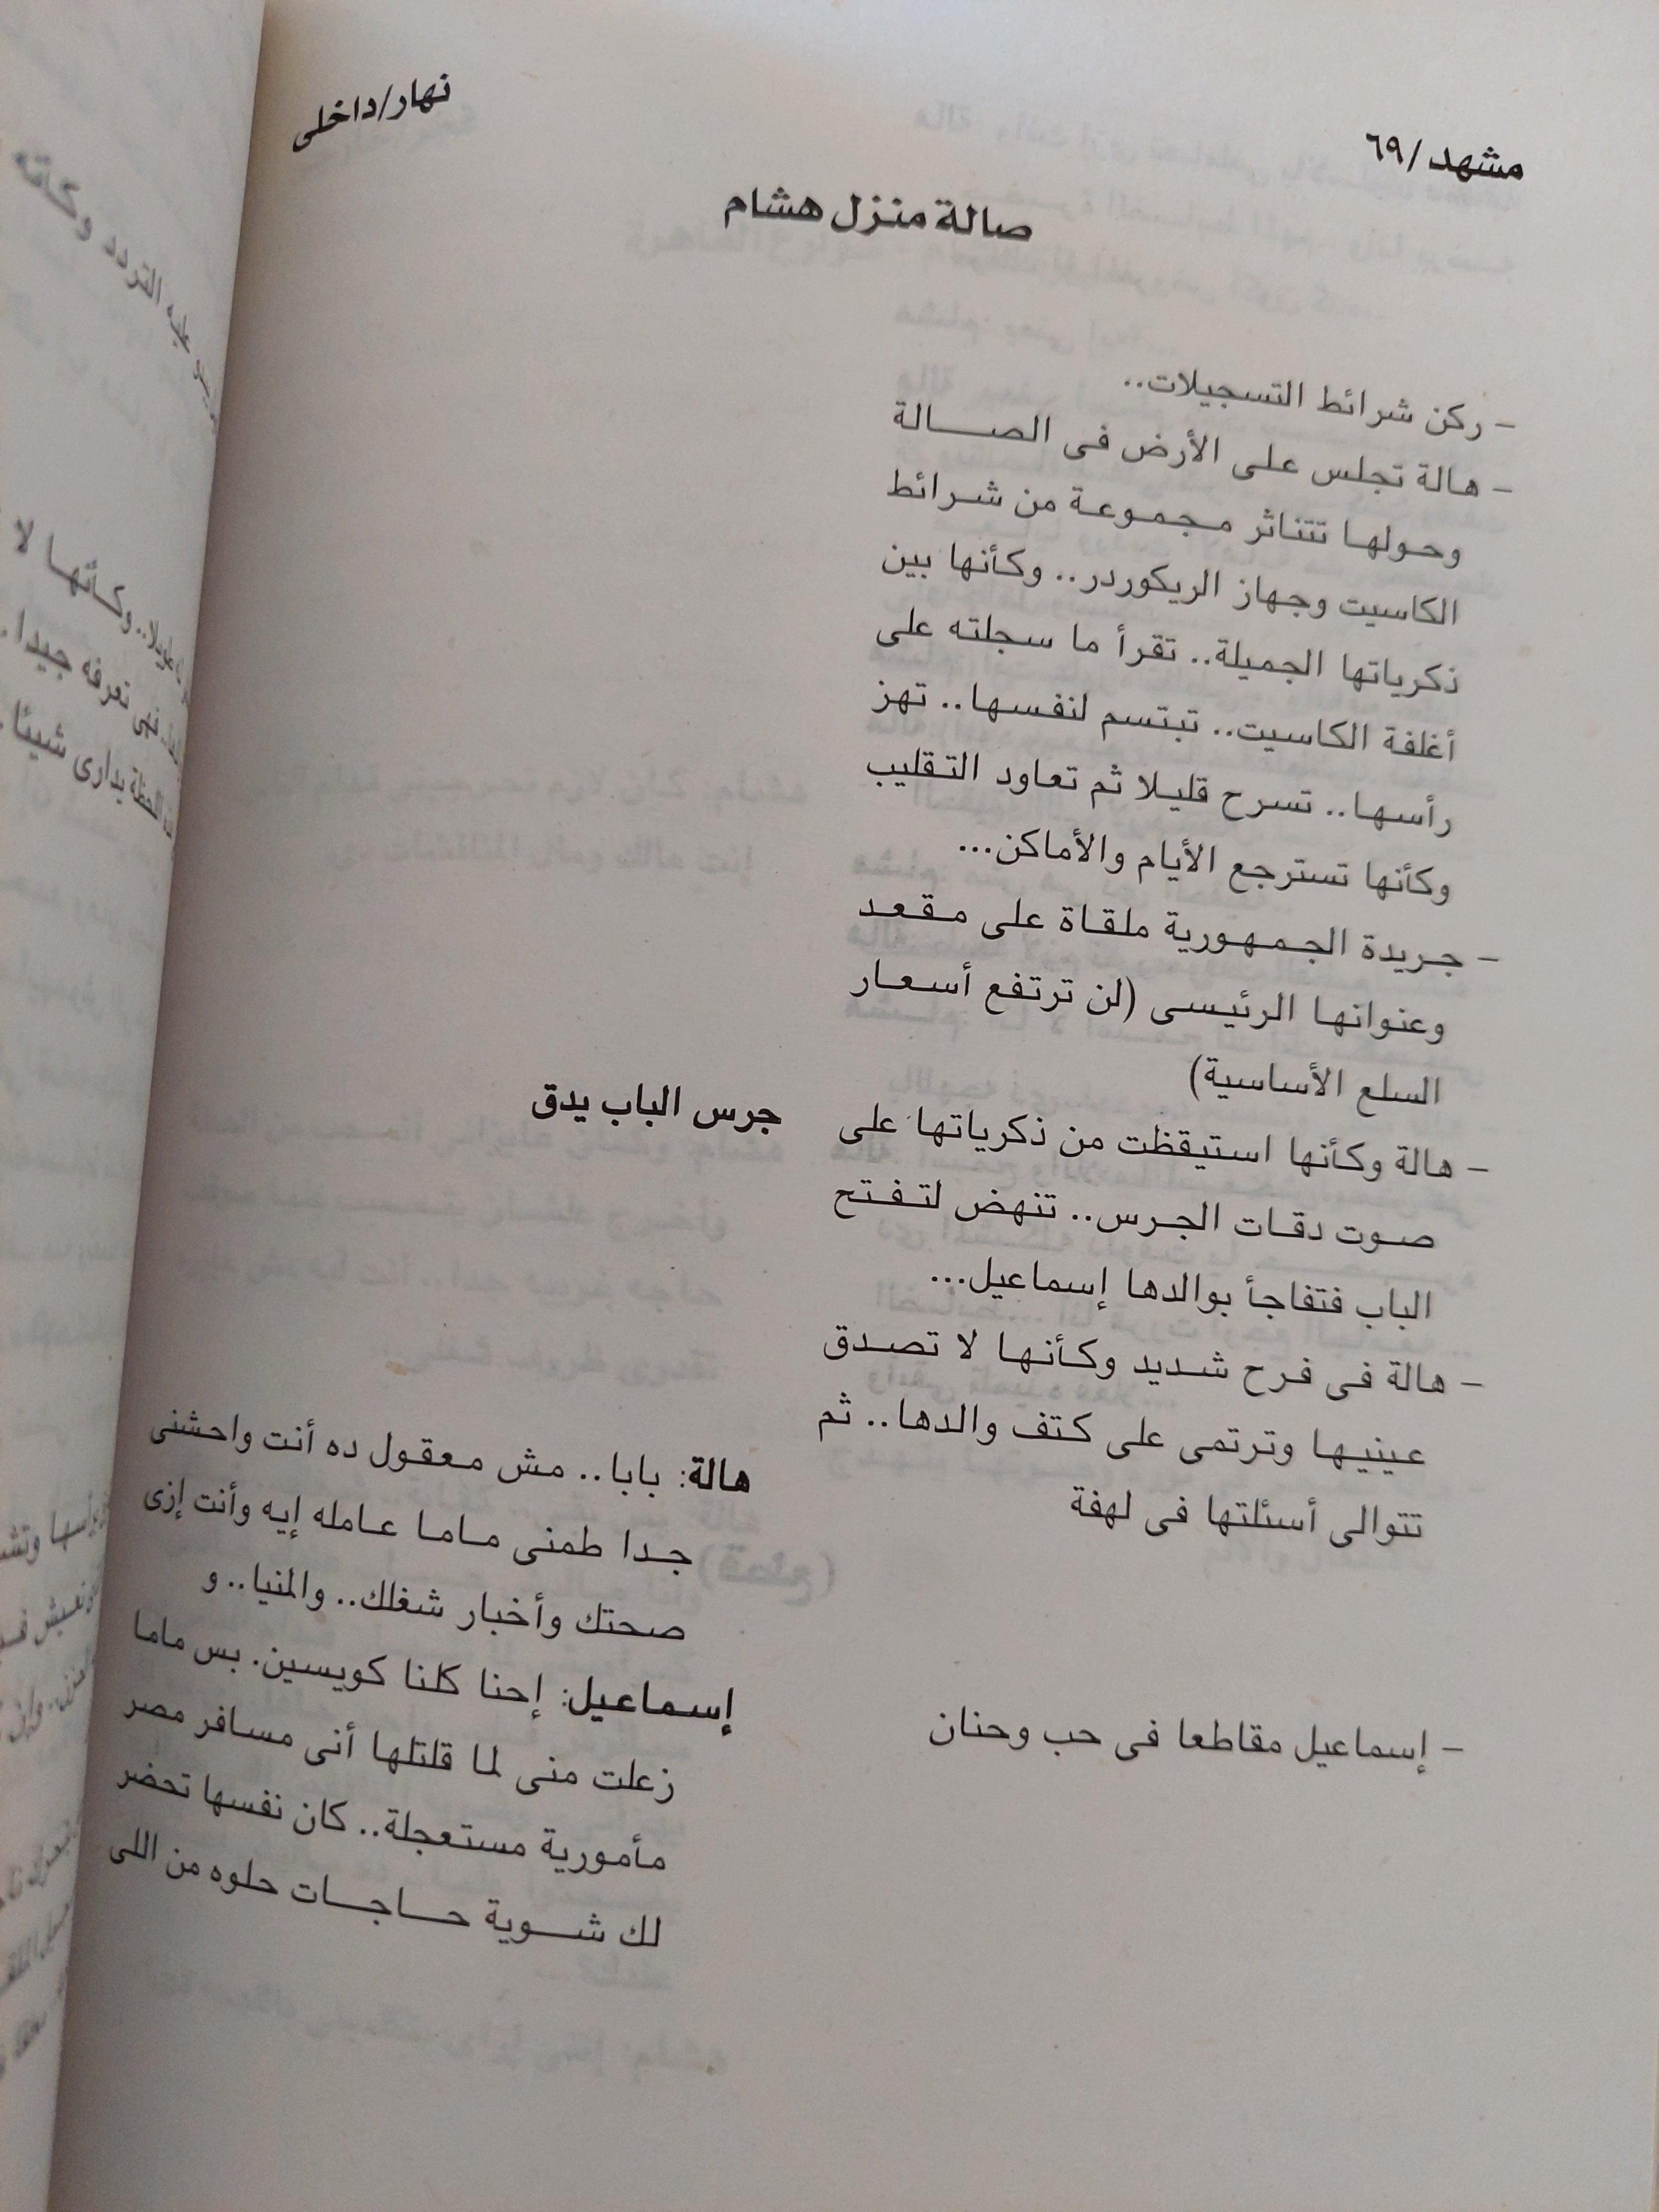 مشهد/٦٩
نهار/داخلى
صالة منزل هشام
- ركن شرائط التسجيلات..
- هالة تجلس على الأرض فى الصالة
وحولها تتناثر مجموعة من شرائط
الكاسيت وجهاز الريكوردر.. وكأنها بين
ذكرياتها الجميلة.. تقرأ ما سجلته على
أغلفة الكاسيت.. تبتسم لنفسها.. تهز
رأسها.. تسرح قليلا ثم تعاود التقليب
وكأنها تسترجع الأيام والأماكن...
- جريدة الجمهورية ملقاة على مقعد
وعنوانها الرئيسى (لن ترتفع أسعار
السلع الأساسية)
جرس الباب يدق
- هالة وكأنها استيقظت من ذكرياتها على
صوت دقات الجرس.. تنهض لتفتح
الباب فتفاجأ بوالدها إسماعيل...
- هالة فى فرح شديد وكأنها لا تصدق
عينيها وترتمى على كتف والدها.. ثم
تتوالى أسئلتها فى لهفة
هالة: بابا.. مش معقول ده أنت واحشنى
جدا طمنى ماما عامله إيه وأنت إزى
صحتك وأخبار شغلك.. والمنيا.. و
- إسماعيل مقاطعا فى حب وحنان
إسماعيل: إحنا كلنا كويسين. بس ماما
زعلت منى لما قلتلها أنى مسافر مصر
مأمورية مستعجلة.. كان نفسها تحضر
لك شوية حاجات حلوه من اللى
التردد وكأنه
وكأنها لا
تعرفه جيدا.
يدارى شيئا